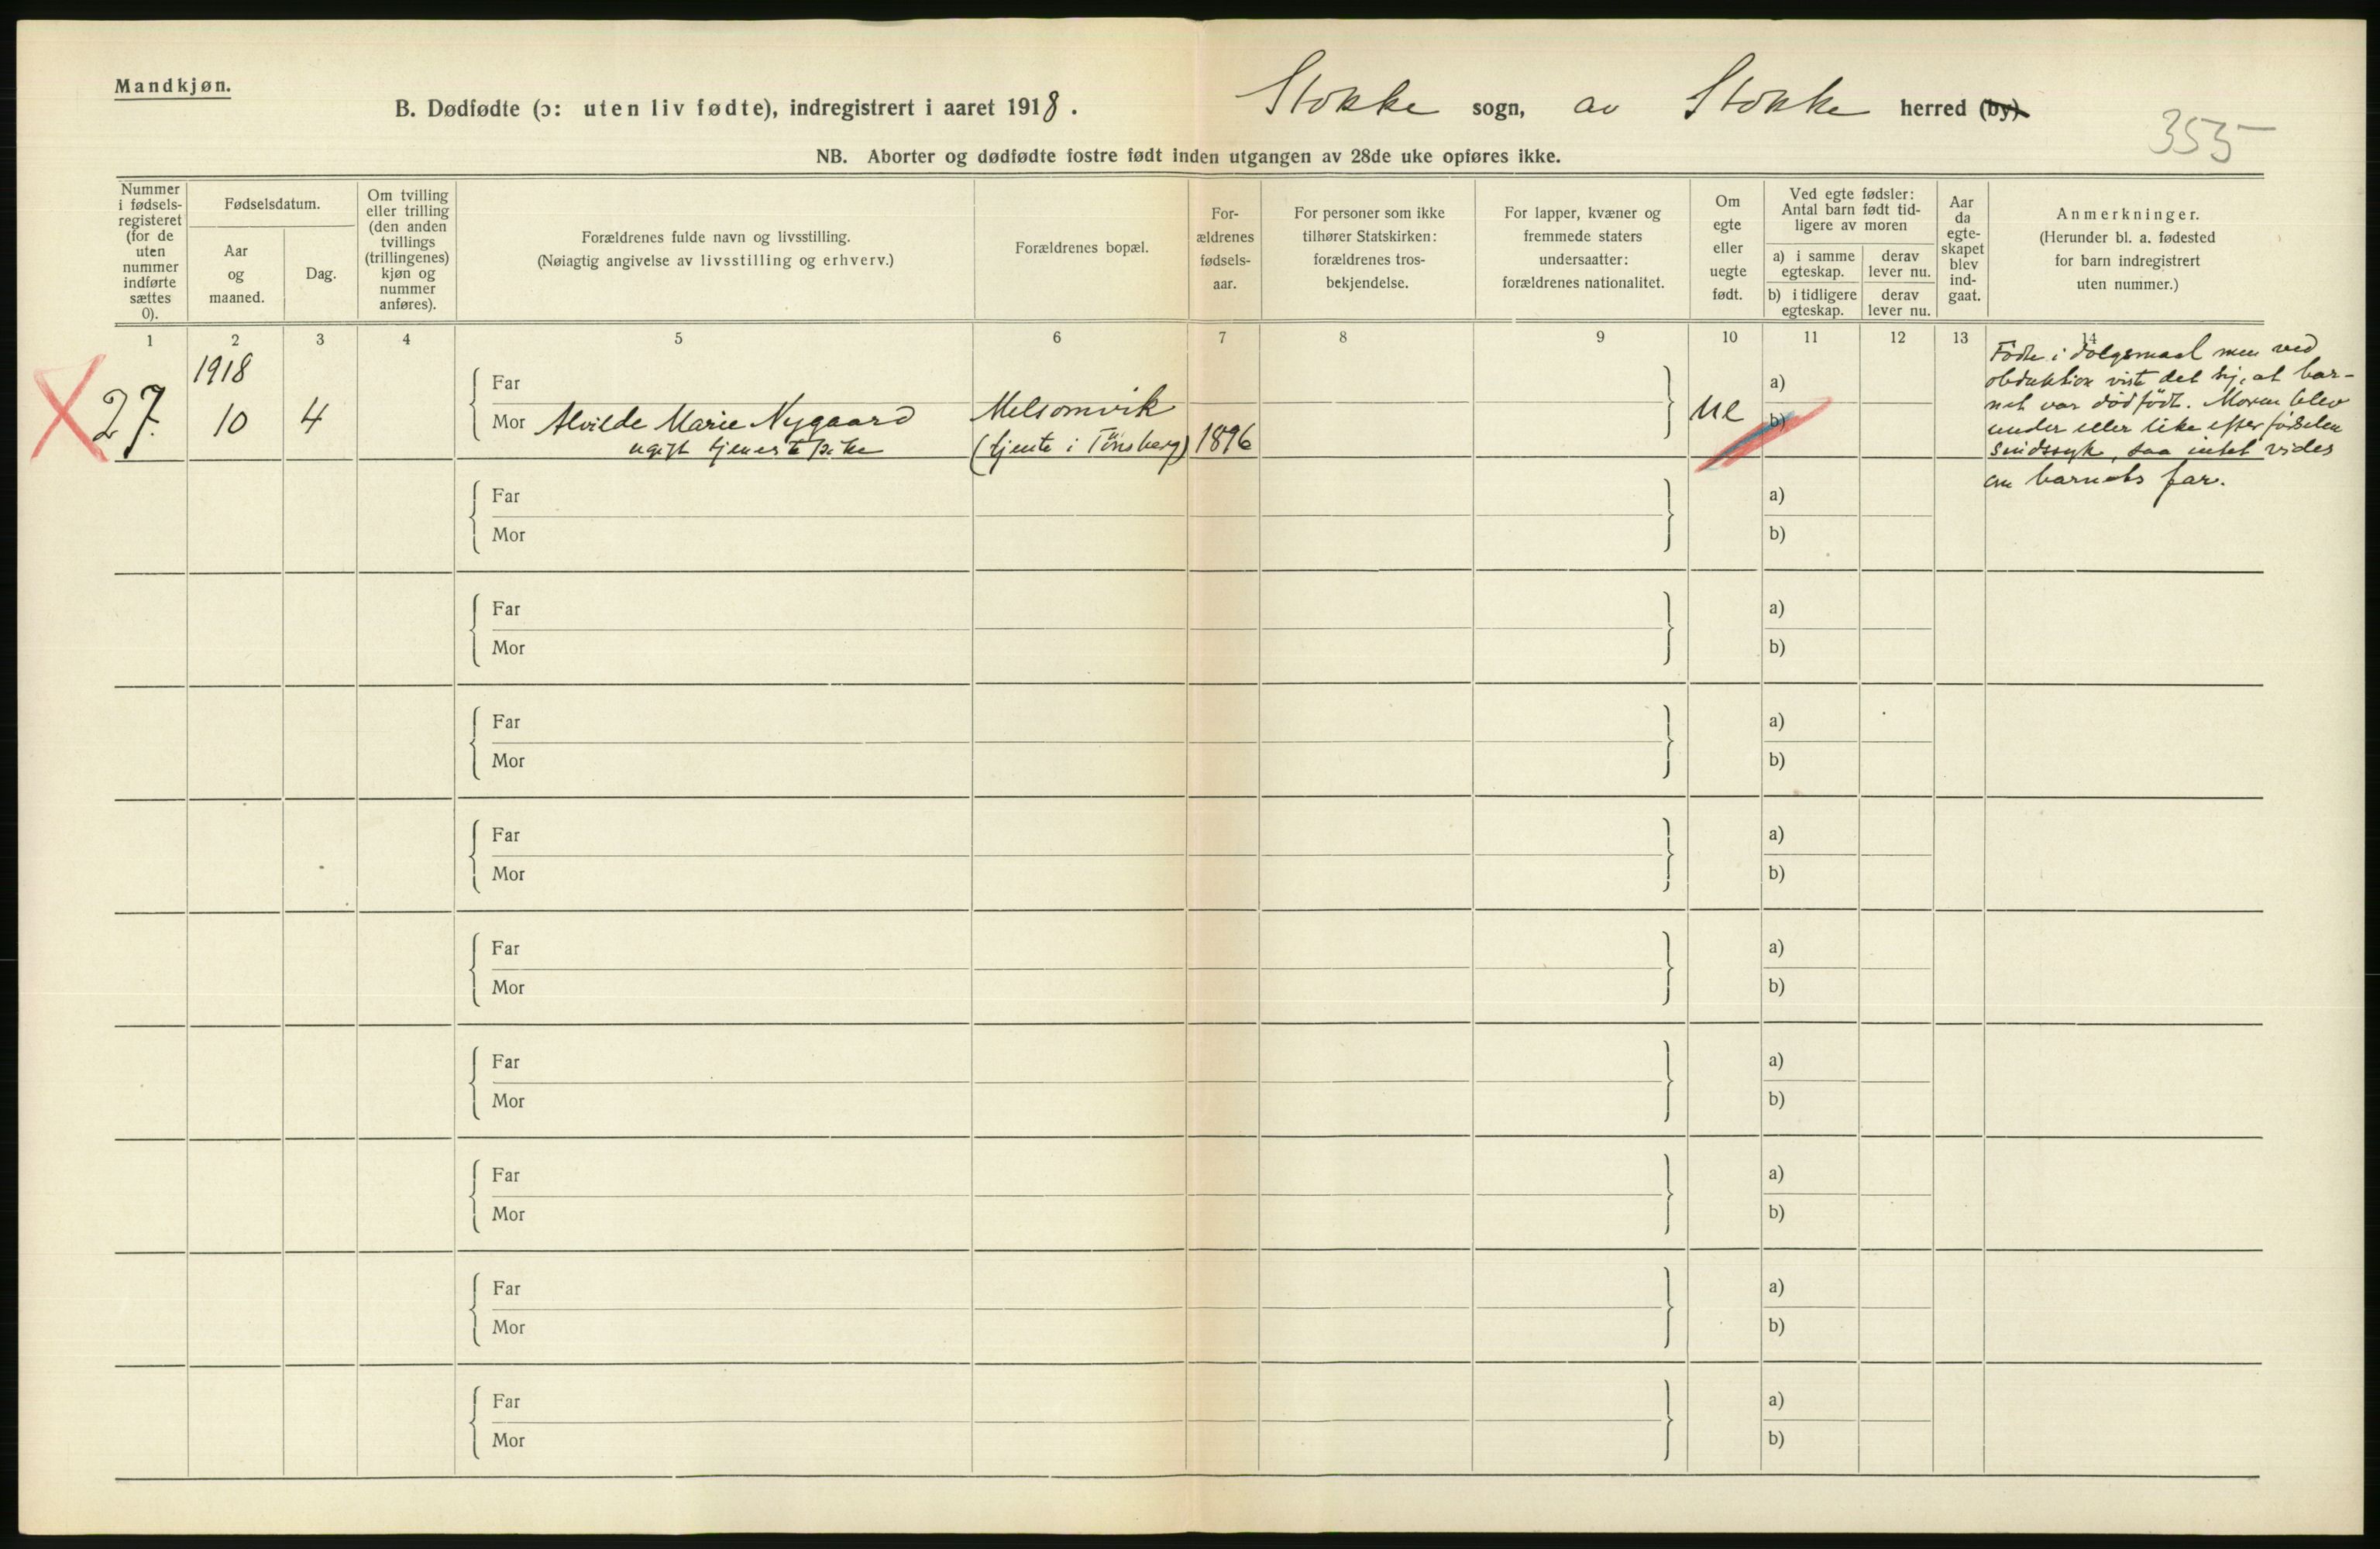 Mandkjøn.
B. Dødfødte (ɔ: uten liv fødte), indregistrert i aaret 1918. Stokke sogn, av Stokke herred (by)
355
NB. Aborter og dødfødte fostre født inden utgangen av 28de uke opføres ikke.
Nummer
i fødsels-
registeret
(for de
uten
nummer
indførte
sættes
0).
Fødselsdatum.
Aar
og
maaned.
Dag.
Om tvilling
eller trilling
(den anden
tvillings
(trillingenes)
kjøn og
nummer
anføres).
Forældrenes fulde navn og livsstilling.
(Nøiagtig angivelse av livsstilling og erhverv.)
Forældrenes bopæl.
For-
ældrenes
fødsels-
aar.
For personer som ikke
tilhører Statskirken:
forældrenes tros-
bekjendelse.
For lapper, kvæner og
fremmede staters
undersaatter:
forældrenes nationalitet.
Om
egte
eller
uegte
født.
Ved egte fødsler:
Antal barn født tid-
ligere av moren
a) i samme
egteskap.
derav
lever nu.
b) i tidligere
egteskap.
derav
lever nu.
Aar
da
egte-
skapet
blev
ind-
gaat.
Anmerkninger.
(Herunder bl. a. fødested
for barn indregistrert
uten nummer.)
1 2 3 4 5 6 7 8 9 10 11 12 13 14
1918
Far a)
27. 10 4 Mor Alvilde Marie Nygaard Melsomvik ue b)
ugift tjenestepike (tjente i Tönsberg) 1896
Födte i dölgsmaal men ved
obduktion viste det sig, at bar-
net var dödfödt. Moren blev
under eller like efter födselen
sindssyk, saa intet vides
om barnets far.
Far a)
Mor b)
Far a)
Mor b)
Far a)
Mor b)
Far a)
Mor b)
Far a)
Mor b)
Far a)
Mor b)
Far a)
Mor b)
Far a)
Mor b)
Far a)
Mor b)